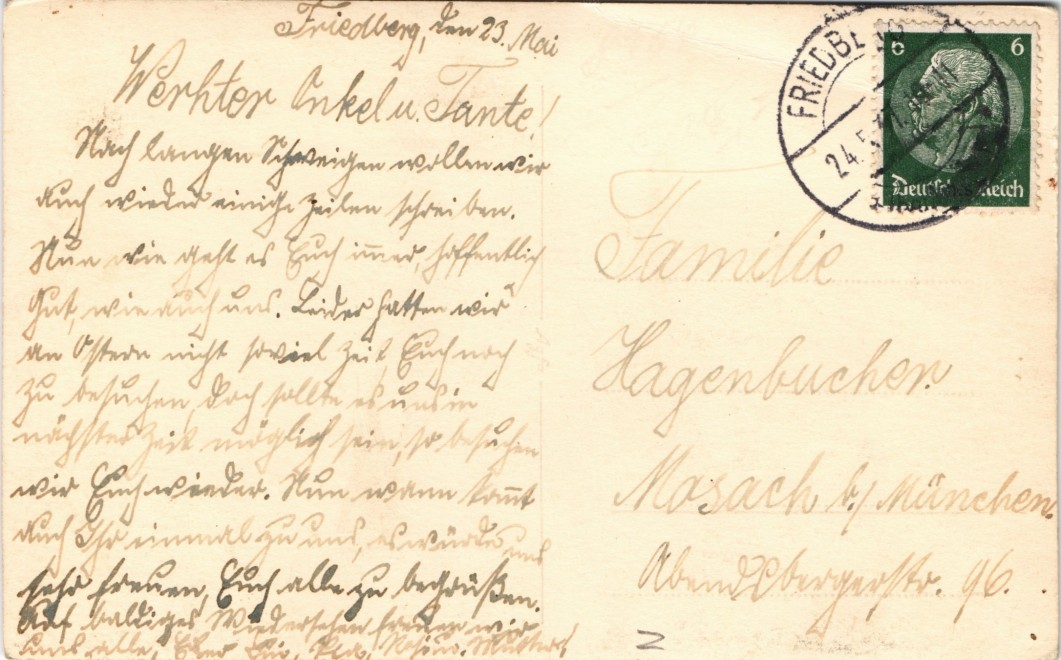 Friedberg, den 23. Mai
Werhter Onkel u. Tante!
Nach langen Schweigen wollen wir
auch wieder einige Zeilen schreiben.
Nun wie geht es Euch immer, hoffentlich
Gut, wie auch uns. Leider hatten wir
an Ostern nicht soviel Zeit, Euch noch
zu besuchen, doch sollte es uns in
nächster Zeit möglich sein, so besuchen
wir Euch wieder. Nun wann kommt
auch Ihr einmal zu uns, es würde uns
sehr freuen, Euch alle zu begrüßen.
Auf baldiges Wiedersehen freuen wir
uns alle,
FRIEDBE
24.5.
6 6
Deutsches Reich
Familie
Hagenbucher.
Mosach b/ München.
Abendsbergerstr. 96.